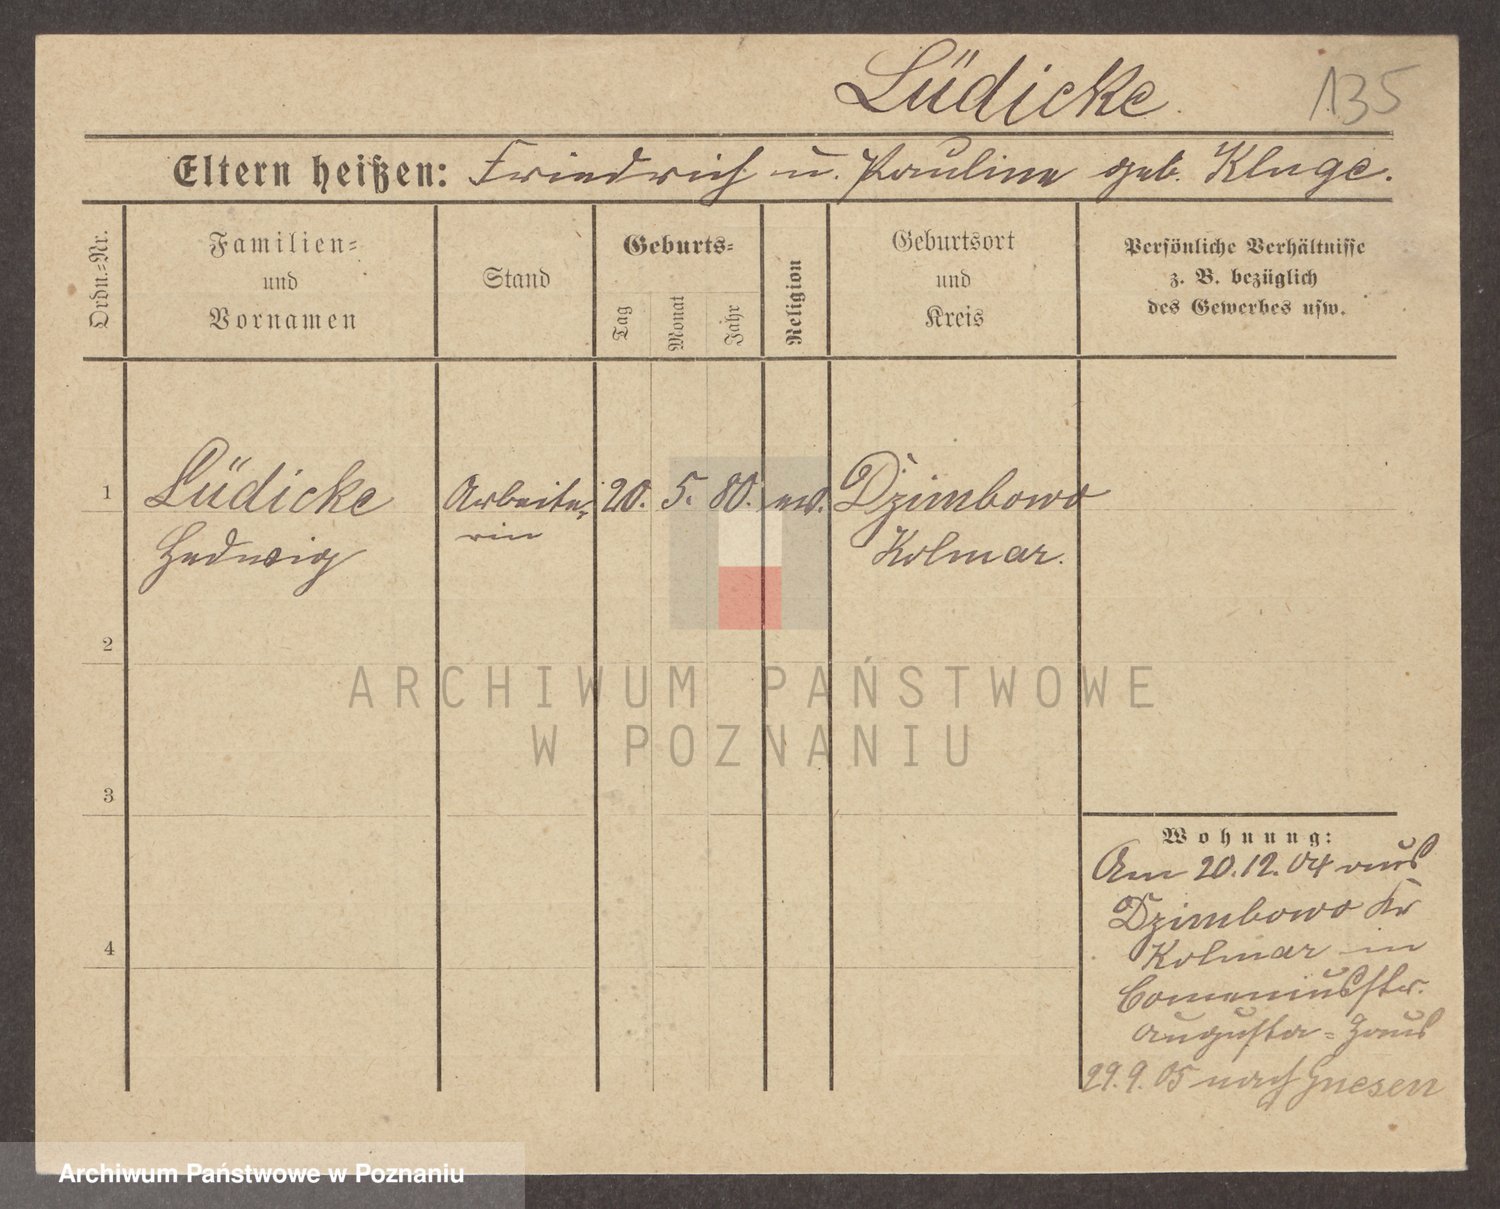 Lüdicke
135
Eltern heißen: Friedrich u. Pauline geb. Kluge.
Ordn.=Nr.
Familien=
und
Vornamen
Stand
Geburts=
Tag
Monat
Jahr
Religion
Geburtsort
und
Kreis
Persönliche Verhältnisse
z. B. bezüglich
des Gewerbes usw.
1
Lüdicke Arbeite- 20. 5. 80. ev. Dzimbowo
Hedwig rin Kolmar.
2
ARCHIWUM PAŃSTWOWE
W POZNANIU
3
Wohnung:
Am 20.12.04 aus
Dzimbowo Kr
Kolmar in
Comeniusstr.
Augusta-Haus
29.9.05 nach Gnesen
4
Archiwum Państwowe w Poznaniu